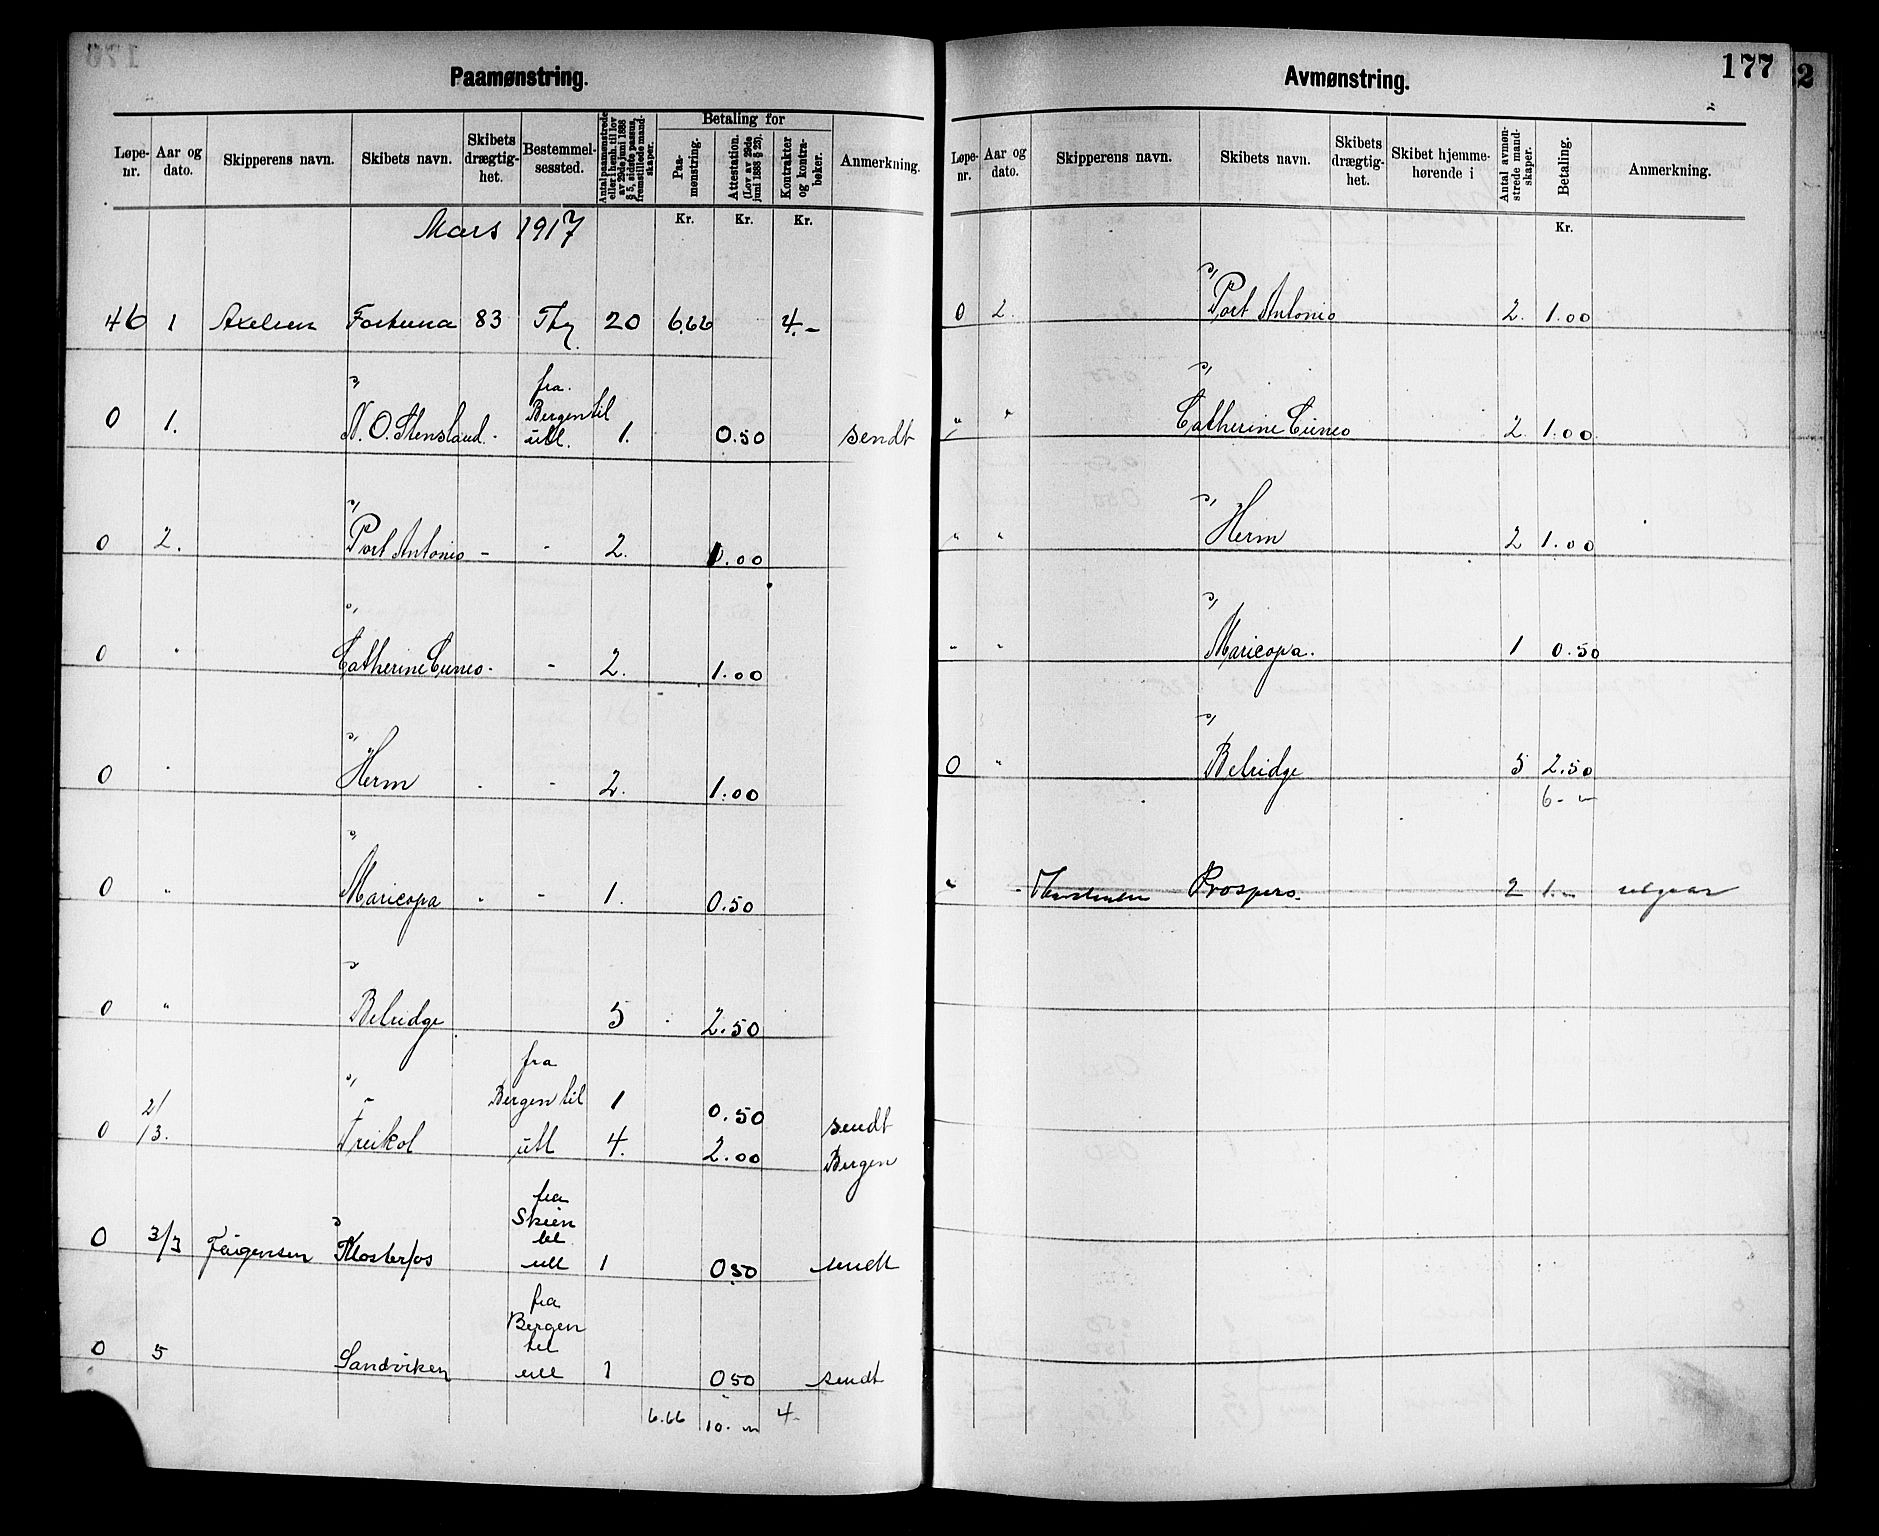 Paamønstring.
Løpe-nr. Aar og dato. Skipperens navn. Skibets navn. Skibets drægtig-het. Bestemmel-sessted. Antal paamønstrede eller i henh. til lov av 29de juni 1888 § 5, sidste passus, fremstillede mand-skaper. Betaling for Paa-mønstring. Attestation. (Lov av 29de juni 1888 § 23). Kontrakter og kontra-bøker. Anmerkning.
Kr. Kr. Kr.
Mars 1917
46 1 Axelsen Fortuna 83 Thy 20 6.66 4.-
0 1. " N. O. Stensland - fra Bergen til utl. 1. 0.50 sendt
0 2. " Port Antonio - - 2. 1.00
0 " " Catherine Cuneo - - 2. 1.00
0 " " Herm - - 2. 1.00
0 " " Maricopa - - 1. 0.50
0 " " Belridge 5 2.50
fra
" Bergen til 1 0.50
0 2/13. Treikol utl 4. 2.00 sendt Bergen
0 3/3 Jørgensen " Klosterfos fra Skien til utl 1 0.50 sendt
0 5 Sandviken fra Bergen til utl 1 0.50 sendt
6.66 10.- 4-
Avmønstring.
177
2
Løpe-nr. Aar og dato. Skipperens navn. Skibets navn. Skibets drægtig-het. Skibet hjemme-hørende i Antal avmøn-strede mand-skaper. Betaling. Anmerkning.
Kr.
0 2. " Port Antonio 2. 1.00
" " " Catherine Cuneo 2 1.00
" " " Herm 2 1.00
" " " Maricopa. 1 0.50
0 " " Belridge 5 2.50
6.-
" - Prospero. 2 1.- utgaar